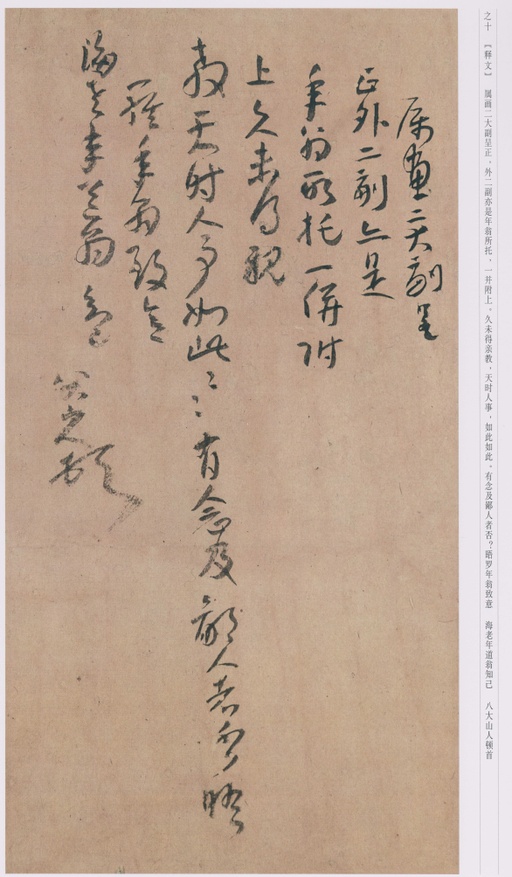 之十 【释文】 属画二大副呈正，外二副亦是年翁所托，一并附上。久未得亲教，天时人事，如此如此。有念及鄙人者否？晤罗年翁致意 海老年道翁知己 八大山人顿首
属画二大副呈
正外二副亦是
年翁所托一併附
上久未得親
教天时人事如此〻〻有念及鄙人者否晤
羅年翁致意
海老年道翁知己
八大山人顿首